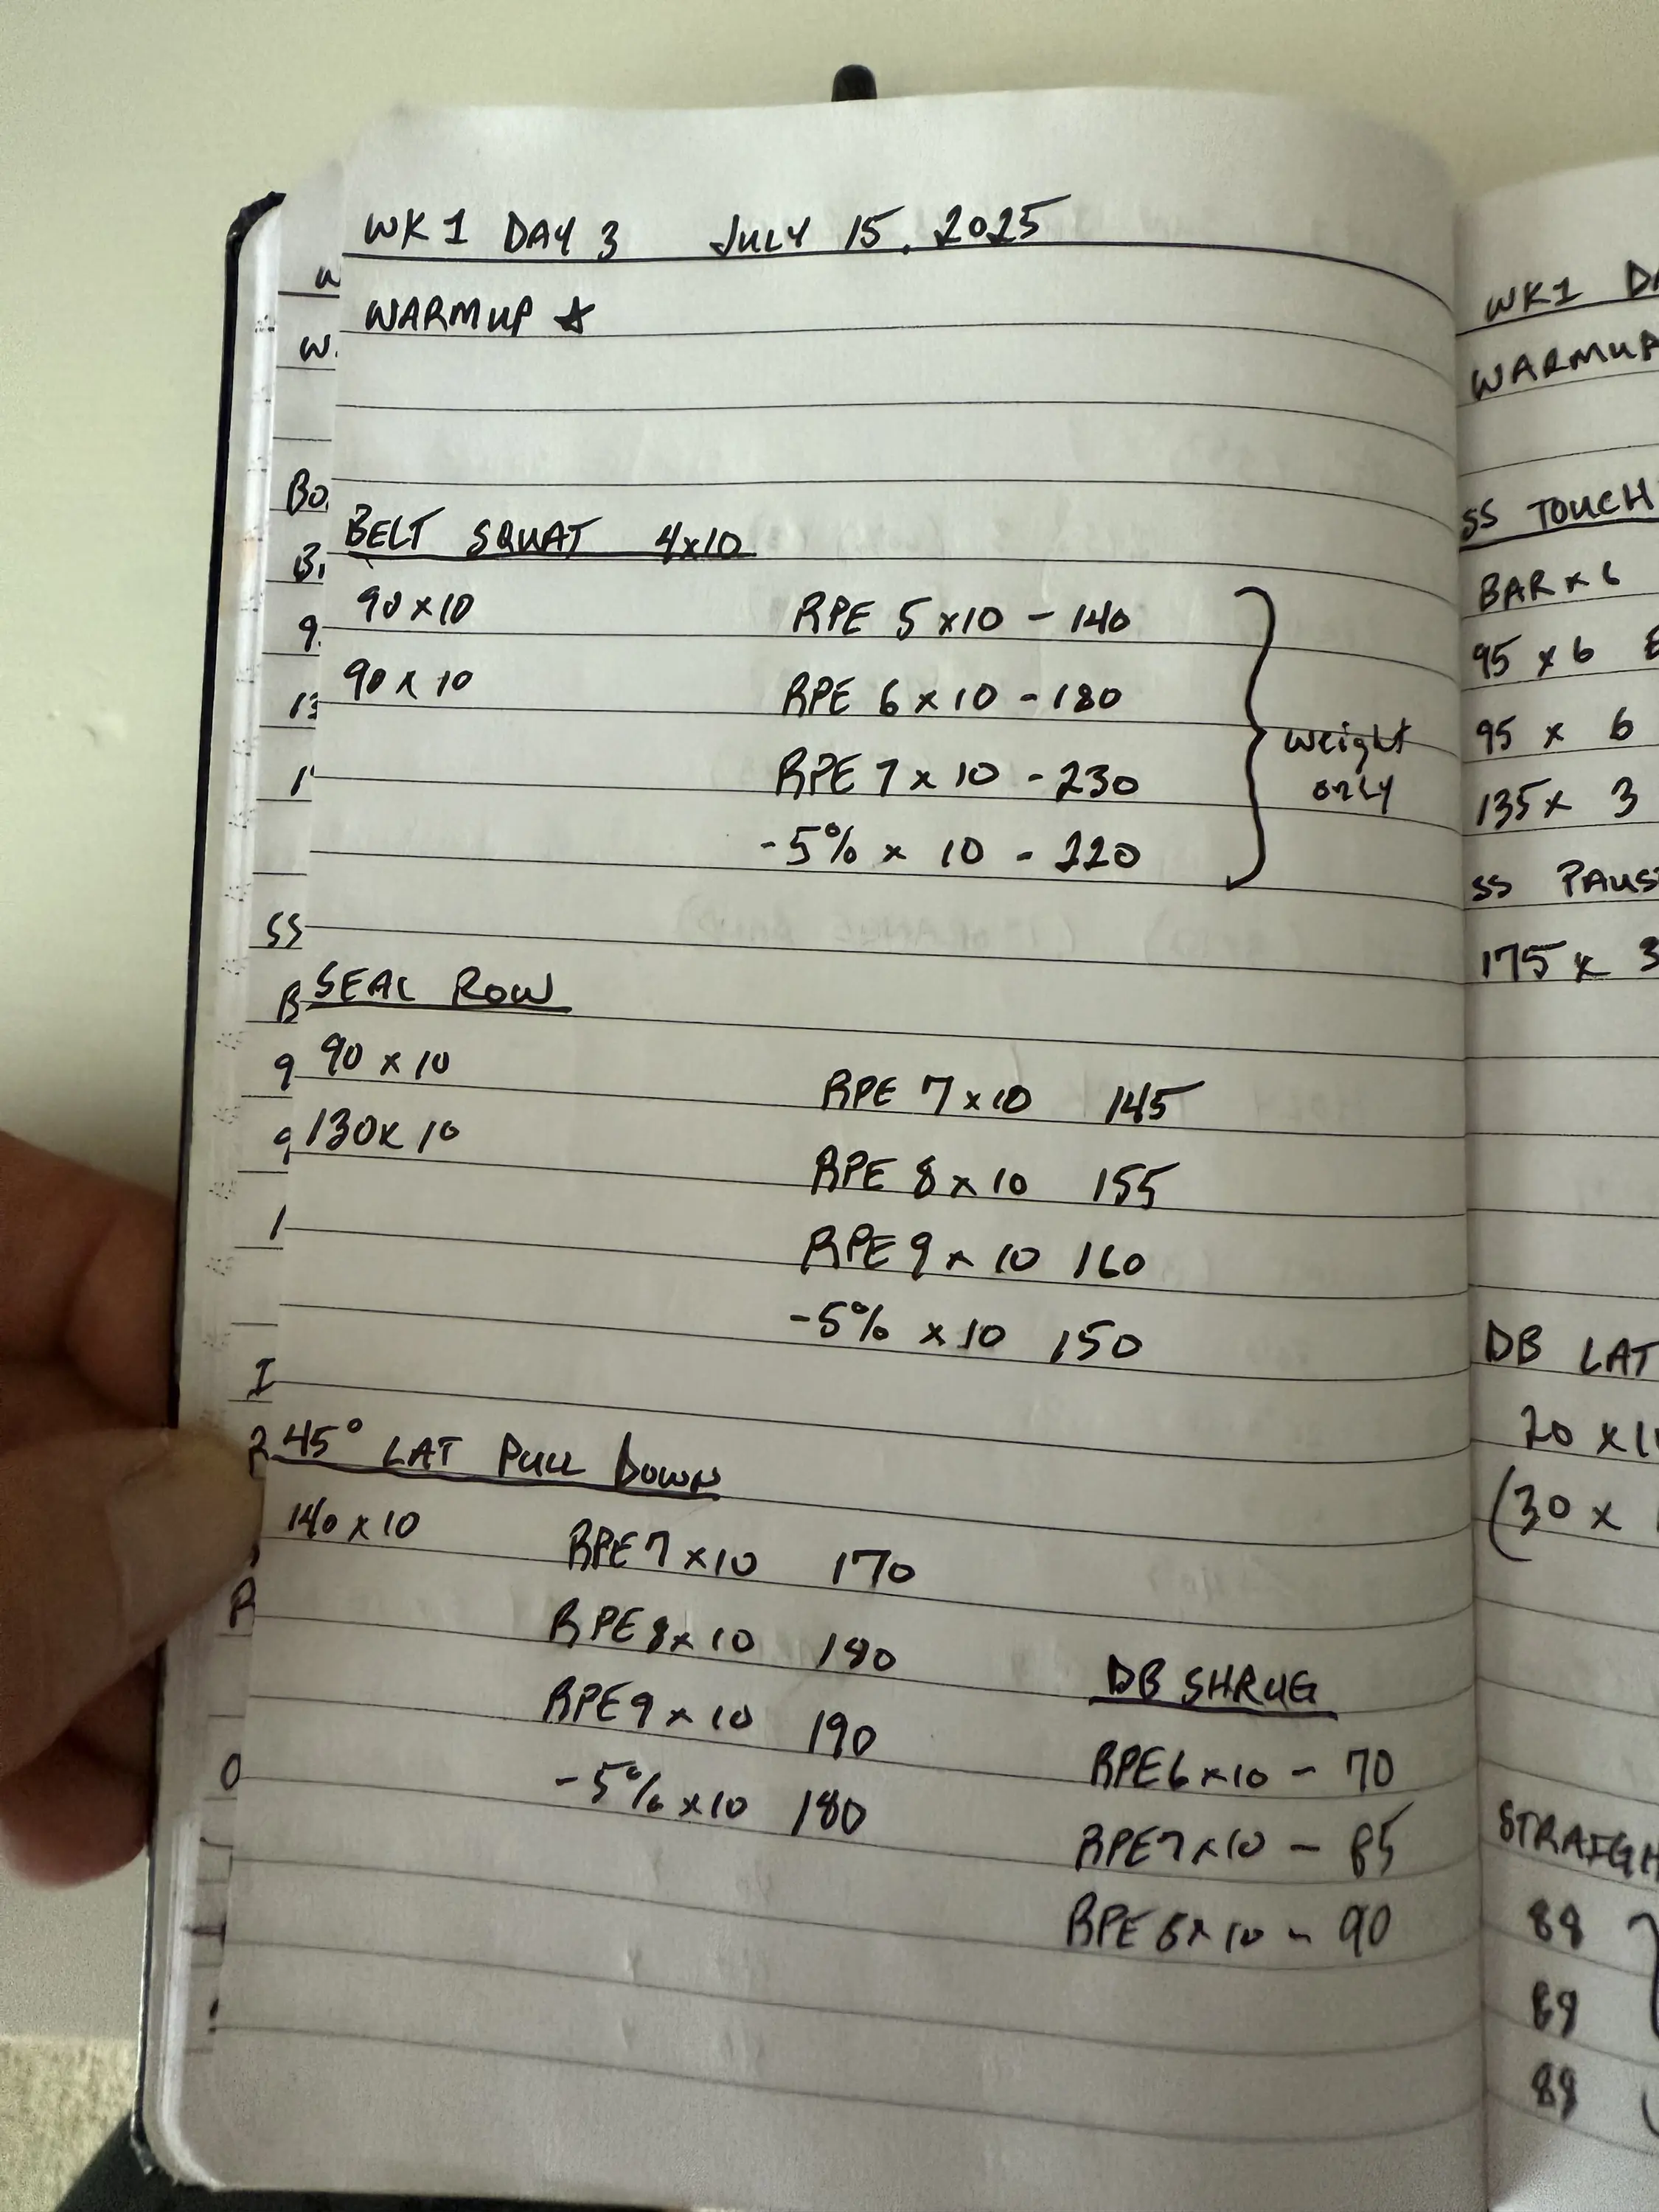 WK1 DAY 3 JULY 15, 2025
WARMUP ☆
BELT SQUAT 4x10
90 x 10 RPE 5 x10 - 140
90 x 10 RPE 6 x 10 - 180
RPE 7 x 10 - 230
-5% x 10 - 220
weight
only
SEAL ROW
90 x 10 RPE 7 x 10 145
130 x 10 RPE 8 x 10 155
RPE 9 x 10 160
-5% x 10 150
45° LAT PULL DOWN
140 x 10 RPE 7 x 10 170
RPE 8 x 10 180
RPE 9 x 10 190
-5% x 10 180
DB SHRUG
RPE 6 x 10 - 70
RPE 7 x 10 - 85
RPE 8 x 10 - 90
WK1 DA
WARMUP
SS TOUCH
BAR x 6
95 x 6
95 x 6
135 x 3
SS PAUS
175 x 3
DB LAT
20 x 1
(30 x
STRAIGH
88
88
88
W
W.
Bo
B
9
13
1
SS
B
9
9
1
I
R
R
O